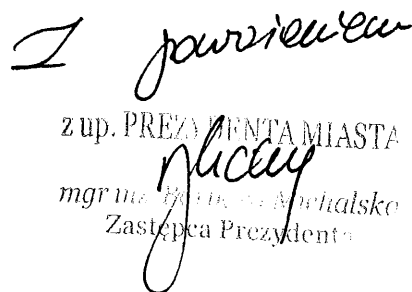 Z poważaniem
z up. PREZYDENTA MIASTA
mgr inż. Michalska
Zastępca Prezydenta